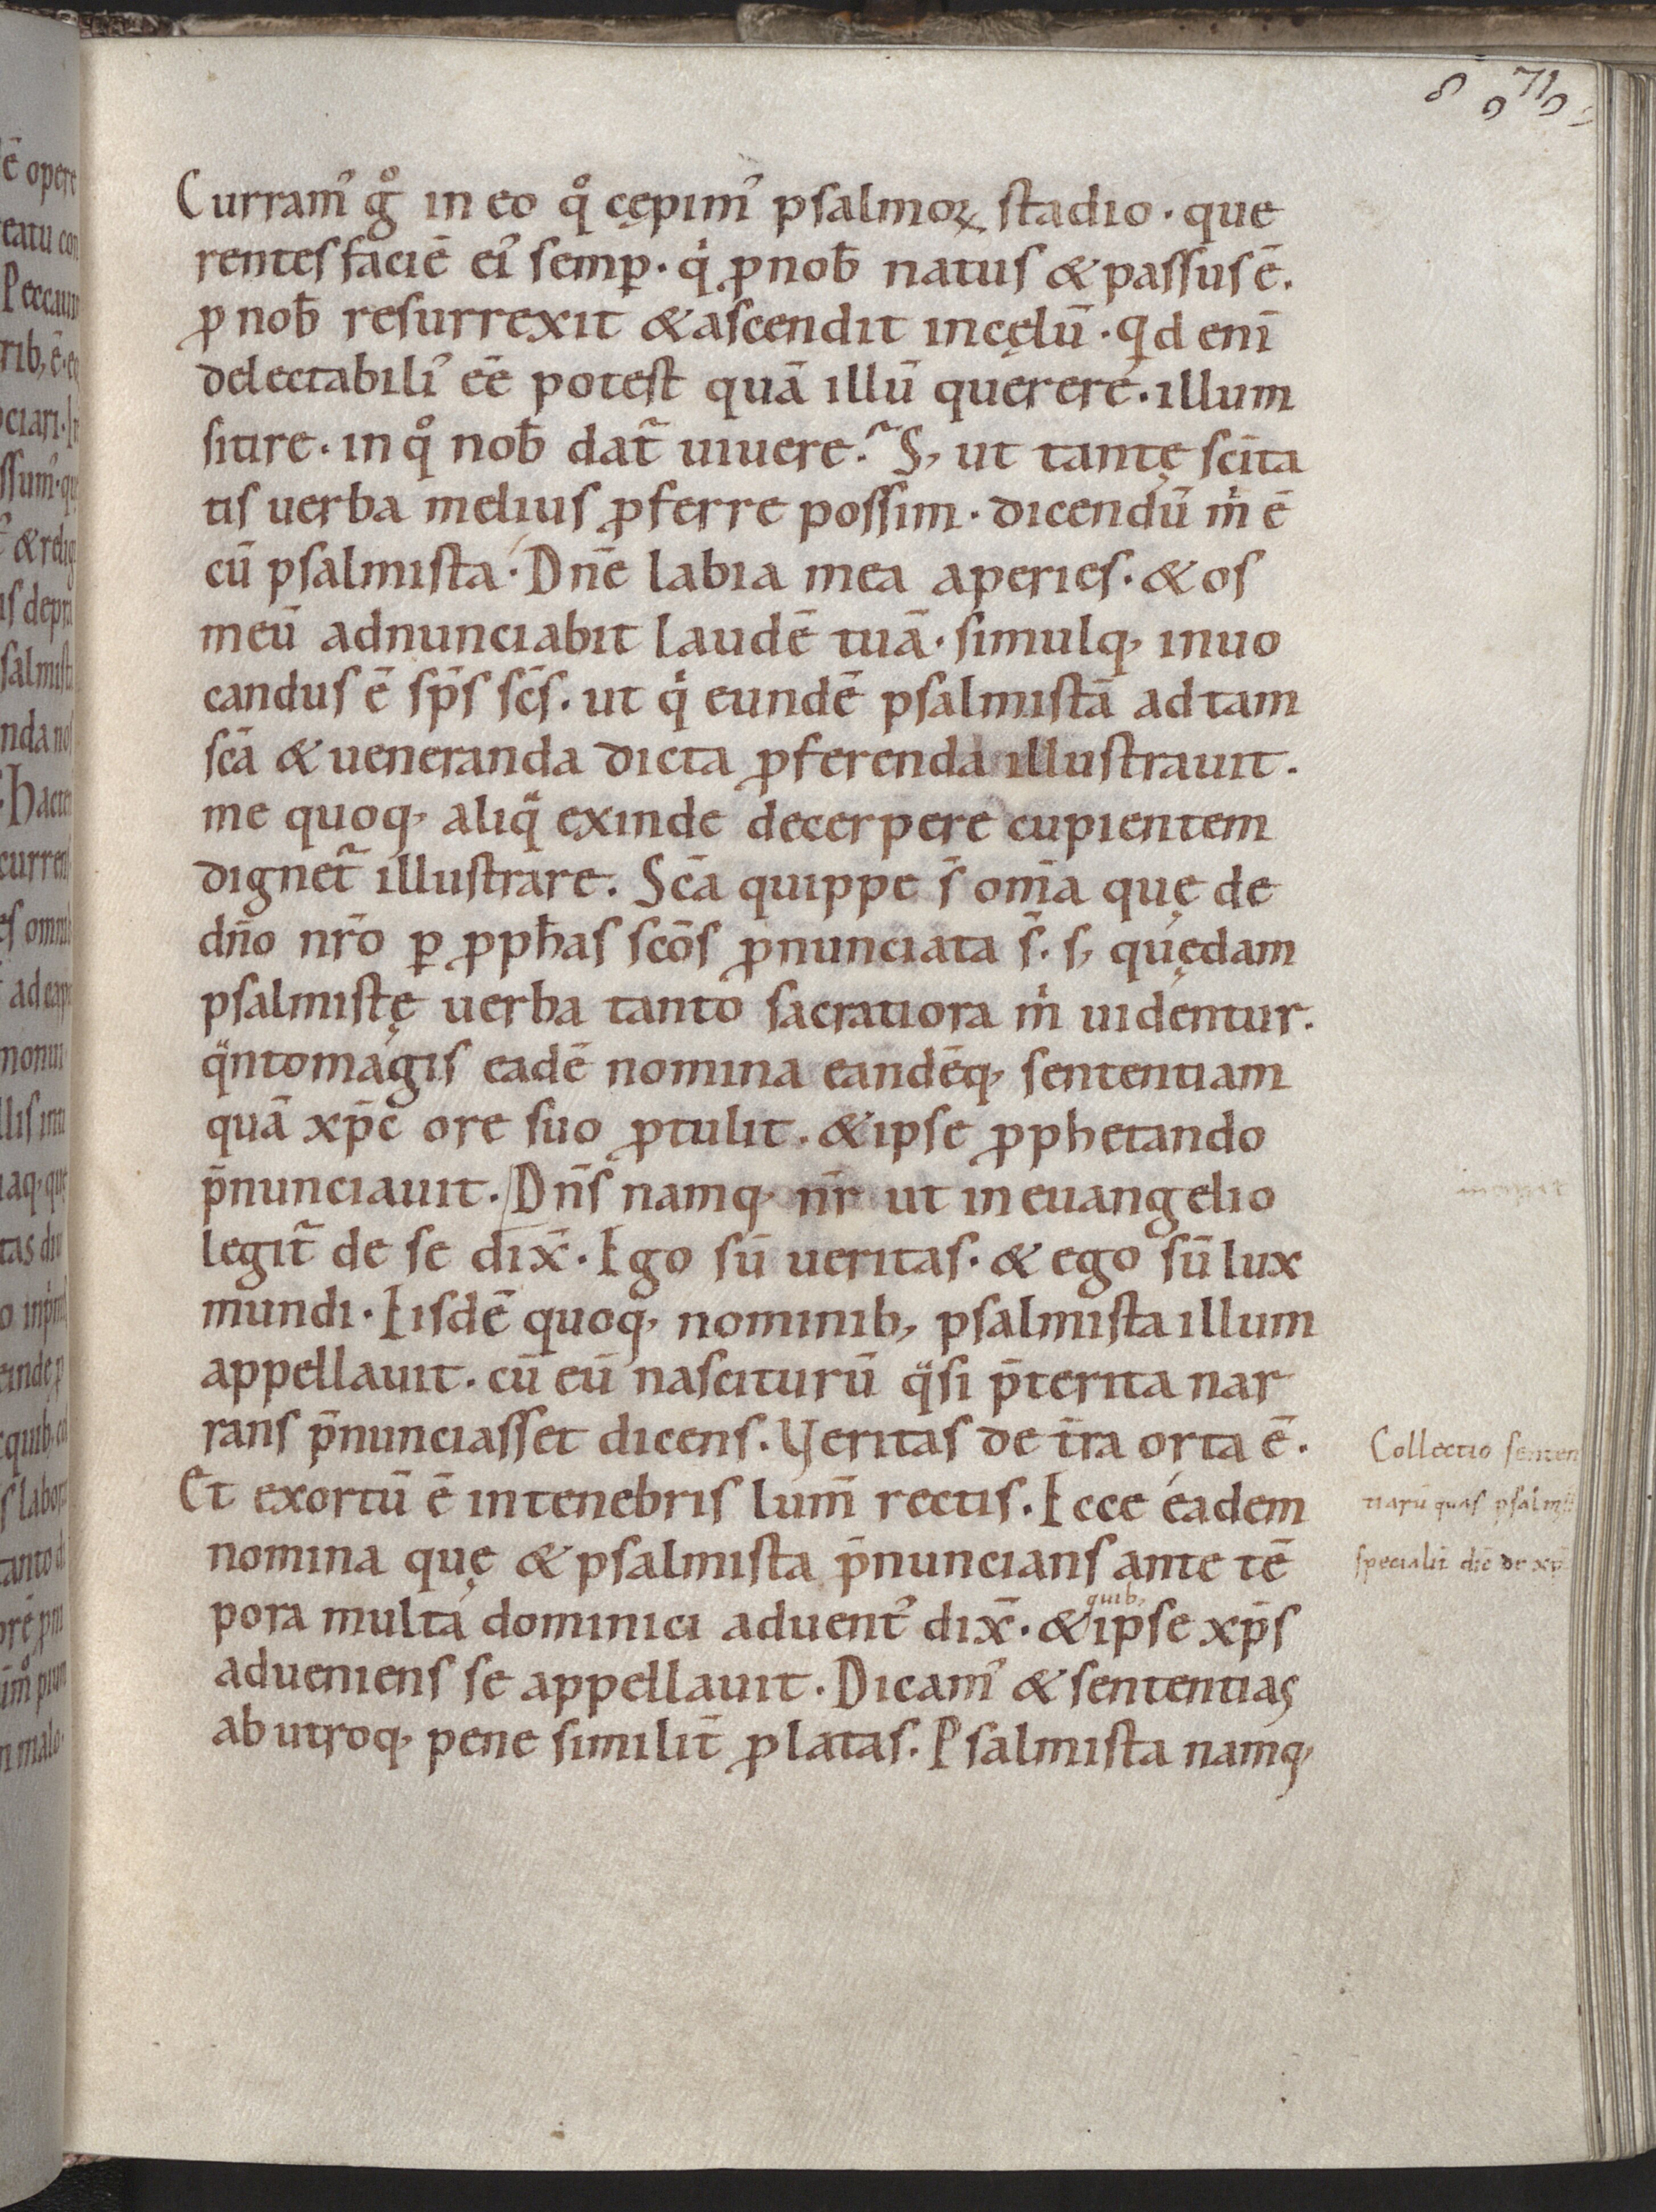 Curram᾽ gͦ in eo qͦ cępim᾽ psalmoꝝ stadio · que
rentes faciē ei᾽ semꝑ · qͥ ꝓ nob̄ natus & passus ē.
ꝓ nob̄ resurrexit & ascendit in cęlū · qͥd enī
delectabili᾽ eē̄ potest quā illū querere · illum
sitire · in qͦ nob̄ dat᷑ uiuere. S; ut tantę scīta
tis uerba melius ꝓferre possim · dicendū m̍ ē
cū psalmista · Dn̄e labia mea aperies · & os
meū adnunciabit laudē tuā · simulq; inuo
candus ē sp̄s sc̄s · ut qͥ eundē psalmistā ad tam
sc̄a & ueneranda dicta ꝓferenda illustrauit.
me quoq; aliqͣ exinde decerpere cupientem
dignet᷑ illustrare. Sc̄a quippe s̄ om̄a quę de
dn̄o nr̄o ꝑ ꝓph̄as sc̄os ꝓnunciata s̄. s; quędam
psalmistę uerba tanto sacratiora m̍ uidentur.
qͣnto magis eadē nomina eandēq; sententiam
quā xp̄c ore suo ꝓtulit · & ipse ꝓphetando
p̄nunciauit. Dn̄s namq; nr̄ ut in euangelio
legit᷑ de se dix̄ · Ego sū ueritas · & ego sū lux
mundi · Eisdē quoq; nominib; psalmista illum
appellauit · cū eū nasciturū qͣsi p̄terita nar
rans p̄nunciasset dicens. Ueritas de t̄ra orta ē.
Et exortū ē in tenebris lum̄ rectis. Ecce eadem
nomina quę & psalmista p̄nuncians ante tē
quib;
pora multa dominici aduent᾽ dix̄ · & ipse xp̄s
adueniens se appellauit · Dicam᾽ & sententias
ab utroq; pene similit̄ ꝓlatas. Psalmista namq;
Collectio senten
tiarū quas psalmis
specialit̄ dic̄ de xp̄